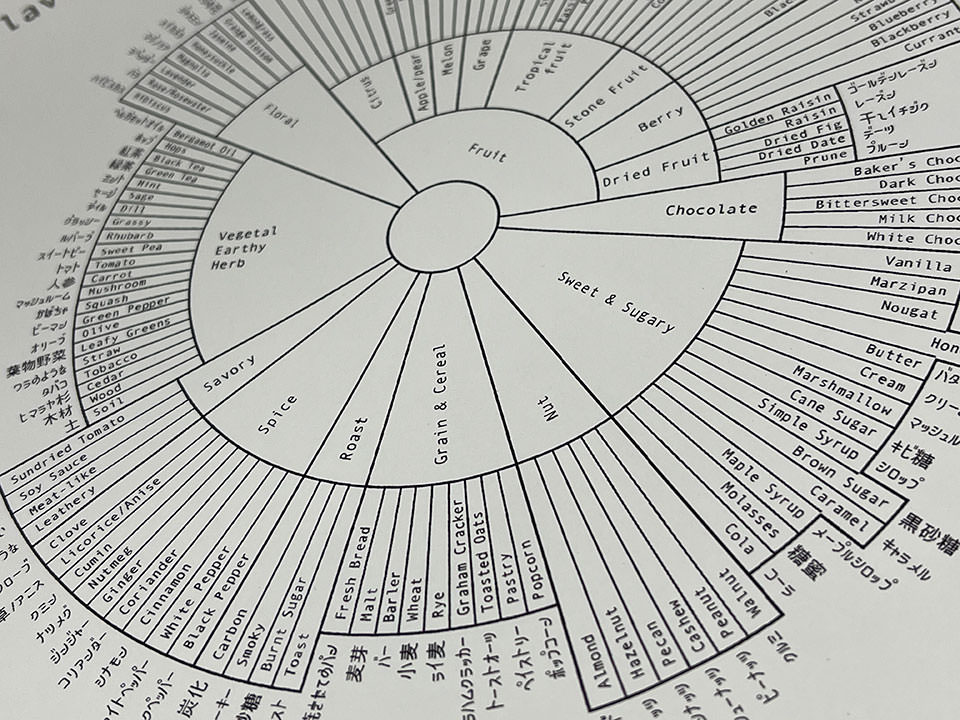 Floral
Citrus
Apple/pear
Melon
Grape
Tropical
fruit
Stone Fruit
Berry
Dried Fruit
Fruit
Chocolate
Sweet & Sugary
Nut
Grain & Cereal
Roast
Spice
Savory
Vegetal
Earthy
Herb
Blueberry
Blackberry
Currant
Golden Raisin
Raisin
Dried Fig
Dried Date
Prune
ゴールデンレーズン
レーズン
干しイチジク
デーツ
プルーン
Baker's Choc
Dark Choc
Bittersweet Choc
Milk Choc
White Choc
Vanilla
Marzipan
Nougat
Hon
Butter
Cream
Marshmallow
Cane Sugar
Simple Syrup
Brown Sugar
Caramel
Maple Syrup
Molasses
Cola
バタ
クリー
マッシュル
キビ糖
シロップ
黒砂糖
キャラメル
メープルシロップ
糖蜜
コーラ
Walnut
Peanut
Cashew
Pecan
Hazelnut
Almond
クルミ
ピーナッツ
Popcorn
Pastry
Toasted Oats
Graham Cracker
Rye
Wheat
Barler
Malt
Fresh Bread
ポップコーン
ペイストリー
トーストオーツ
ラハムクラッカー
ライ麦
小麦
バー
麦芽
Toast
Burnt Sugar
Smoky
Carbon
Black Pepper
White Pepper
Cinnamon
Coriander
Ginger
Nutmeg
Cumin
Licorice/Anise
Clove
炭化
クペッパー
イトペッパー
シナモン
コリアンダー
ジンジャー
ナツメグ
クミン
草/アニス
クローブ
Leathery
Meat-like
Soy Sauce
Sundried Tomato
Hibiscus
Rose/Rosewater
Lavender
Magnolia
Honeysuckle
Jasmine
Orange Blossom
Lemongrass
Bergamot Oil
Hops
Black Tea
Green Tea
Mint
Sage
Dill
Grassy
Rhubarb
Sweet Pea
Tomato
Carrot
Mushroom
Squash
Green Pepper
Olive
Leafy Greens
Straw
Tobacco
Cedar
Wood
Soil
ベルガモットオイル
ホップ
紅茶
緑茶
ミント
セージ
ディル
グラッシー
ルバーブ
スイートピー
トマト
人参
マッシュルーム
かぼちゃ
ピーマン
オリーブ
葉物野菜
ワラのような
タバコ
ヒマラヤ杉
木材
土